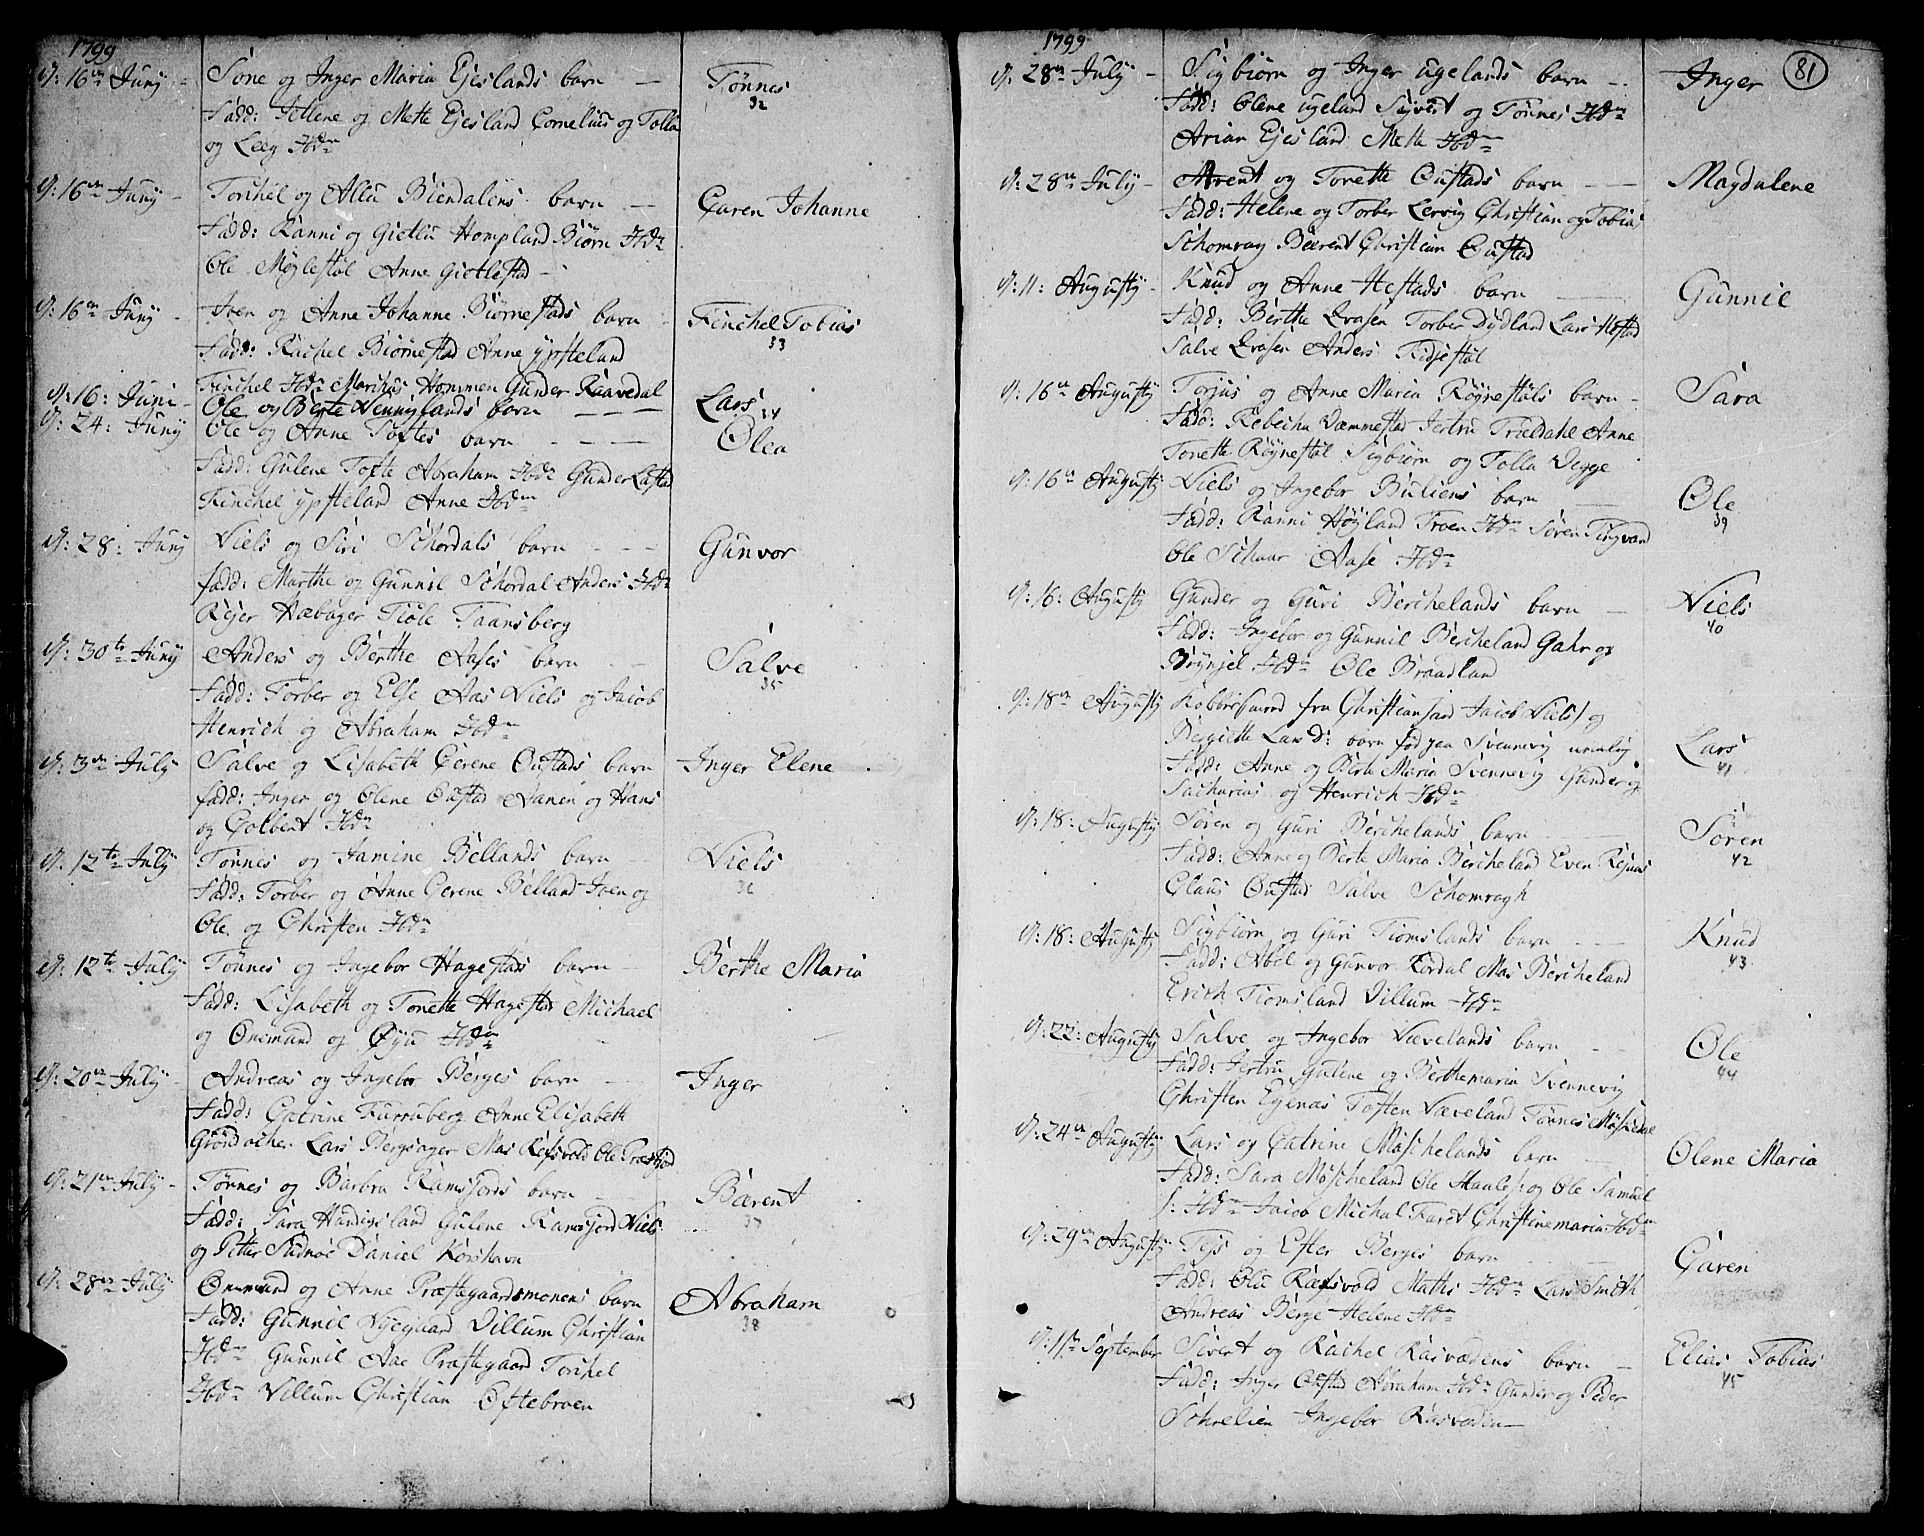 1799
d: 16de Juny - Søne og Inger Maria Ejeslands barn — Tønnes
32
Fadd: Jellene og Mette Ejesland Cornelius og Tolla
og Leeg Ibdm
d: 16de Juny - Torchel og Allu Biendalens barn — Caren Johanne
Fadd: Ranni og Gietlu Hompland Biørn Ibdm
Ole Møglestøl Anne Gietlestad
d: 16de Juny - Joen og Anne Johanne Biørnestads barn Finchel Tobias
33
Fadd: Rachel Biørnestad Anne ypsteland
Finchel Ibdm Marchus Hommen Gunder Raavedal
d: 16: Juni - Ole og Berte Vennislands barn — Lars
34
d: 24: Juny Ole og Anne Toftes barn — Olea
Fadd: Gulene Tofte Abraham Ibdm Gunder Lastad
Finchel ypsteland Anne Ibdm
d: 28: Juny Niels og Siri Schordals barn Gunvor
fadd: Marthe og Gunnil Schordal Anders Ibdm
Rejer Hæbager Tiøle Taansberg
d: 30te Juny Anders og Berthe Aases barn Salve
35
Fadd: Torber og Else Aas Niels og Jacob
Henrich og Abraham Ibdm
d: 3de July Salve og Lisabeth Cerene Oustads barn Inger Elene
fadd: Inger og Olene Oustad Aanen og Hans
og Colbent Ibdm
d: 12te July Tønnes og Jamine Bellands barn Niels
36
Fadd: Torber og Anne Cerene Belland Joen og
Ole og Christen Ibdm
d: 12te July Tønnes og Ingebor Hagestads barn Berthe Maria
Fadd: Lisabeth og Tonette Hagestad Michael
og Onemund og Øyu Ibdm
d: 20de July - Andreas og Ingebor Berges barn Inger
Fadd: Catrine Furruberg Anne Elisabeth
Grøndocher Lars Bergsager Mas Refsvold Ole Præstjord
d: 21de July - Tønnes og Barbra Ramsjords barn Bærent
37
Fadd: Sara Handigsland Gulene Ramsjord Niels
og Petter Sudnoe Daniel Korshavn
d: 28de July Onemund og Anne Præstegaardsmonens barn Abraham
38
Fadd: Gunnil Nyegaard Villum Christian
Ibdm Gunnil Aae Præstegaard Torchel
Ibdm Villum Christian Oftebroen
1799
81
d: 28de July - Sigbiørn og Inger ugelands barn - Inger
Fadd: Olene ugeland Syvert og Tønnes Ibdm
Arian Ejesland Mette Ibdm
d: 28de July - Arent og Tonette Oustads barn — Magdalene
Fadd: Helene og Torber Lervig Christian og Tobias
Schomrag Bærent Christian Oustad
d: 11: Augusty - Knud og Anne Hestads barn — Gunnil
Fadd: Berthe Qvasen Torber Dydland Lars Hestad
Salve Qvasen Anders Fidjestøl
d: 16de Augusty Torjus og Anne Maria Røynestøls barn - Sara
Fadd: Rebecha Dæmmestad Jertru Træidahl Anne
Tonette Røynestøl Sigbiørn og Tolla Vegge
d: 16de Augusty Niels og Ingebor Buliens barn — Ole
39
Fadd: Ranni Høyland Troen Ibdm Søren Tingvand
Ole Schaar Aase Ibdm
d: 16: Augusty Gunder og Guri Berchelands barn — Niels
40
Fadd: Ingebor og Gunnil Bercheland Gahr og
Brynjel Ibdm Ole Braadland
d: 18de Augusty Kobbersmed fra Christiansand Jacob Niels: og
Bergitte Lars D: barn født paa Svennevig nemlig Lars
41
Fadd: Anne og Berte Maria Svennevig Gunder og
Sacharias og Henrich Ibdm
d: 18: Augusty Søren og Guri Berchelands barn Søren
42
Fadd: Anne og Berte Maria Bercheland Even Rejnas
Claus Oustad Salve Schomragh
d: 18: Augusty Sigbiørn og Guri Tiomslands barn Knud
43
Fadd: Abel og Gunvor Rordal Mas Bercheland
Erich Tiomsland Villum Ibdm
d: 22: Augusty Salve og Ingebor Nævelands barn Ole
44
Fadd: Jertru Gulene og Berthemaria Svennevig
Christen Egenæs Tosten Næveland Tønnes
d: 24de Augusty Lars og Catrine Møschelands barn Olene Maria
Fadd: Sara Møscheland Ole Haals: og Ole Samuel
s: Ibdm Jacob Michal Faret Christinemaria Ibdm
d: 29de Augusty Tejs og Ester Berges barn Caren
Fadd: Olu Refsvold Mathis Ibdm Lars Smith
Andreas Berge Helene Ibdm
d: 1ste September Sivert og Rachel Rasvædens barn — Elias Tobias
45
Fadd: Inger Oustad Abraham Ibdm Gunder og Peder
Schrelien Ingebor Rasvæden